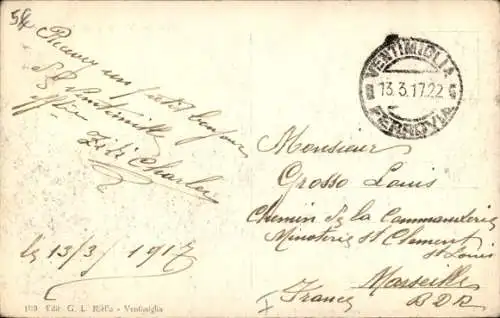 Recevez un petit bonjour
de Ventimille
Fifi Charles
le 13/3/1917
VENTIMIGLIA
13.3.17.22
FERROVIA
Monsieur
Grosso Louis
Chemin de la Commanderie
Minoterie St Clement
St Louis
Marseille
France
B D R
Edit G. L. - Ventimiglia